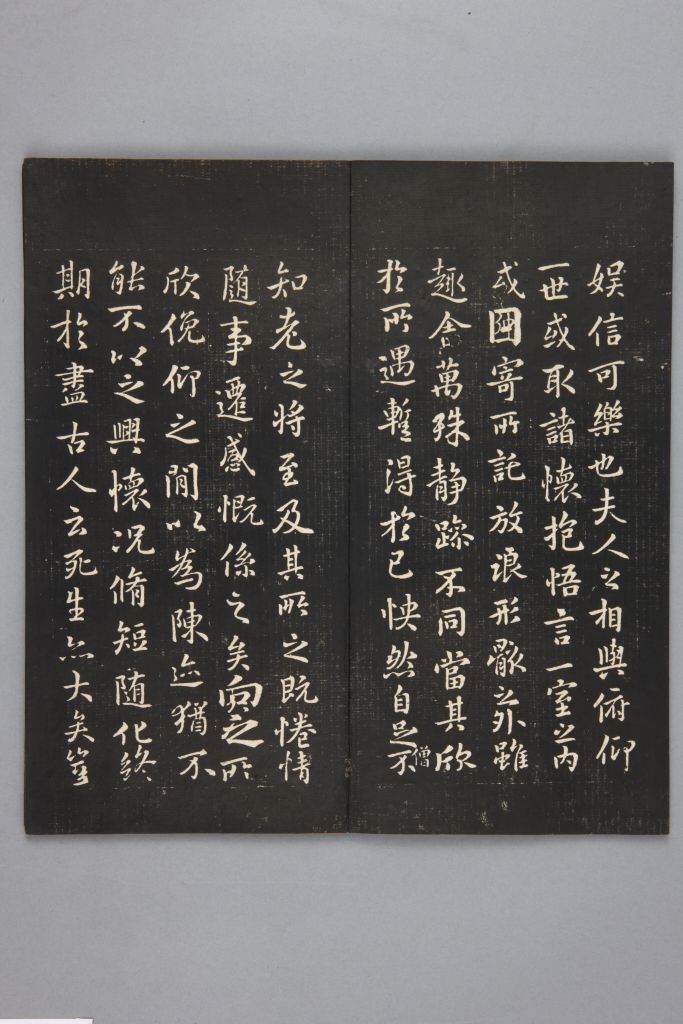 娛信可樂也夫人之相與俯仰
一世或取諸懷抱悟言一室之內
或因寄所託放浪形骸之外雖
趣舍萬殊靜躁不同當其欣
於所遇暫得於己怏然自足不
僧
知老之將至及其所之既惓情
隨事遷感慨係之矣向之所
欣俛仰之閒以為陳迹猶不
能不以之興懷況脩短隨化終
期於盡古人云死生亦大矣豈